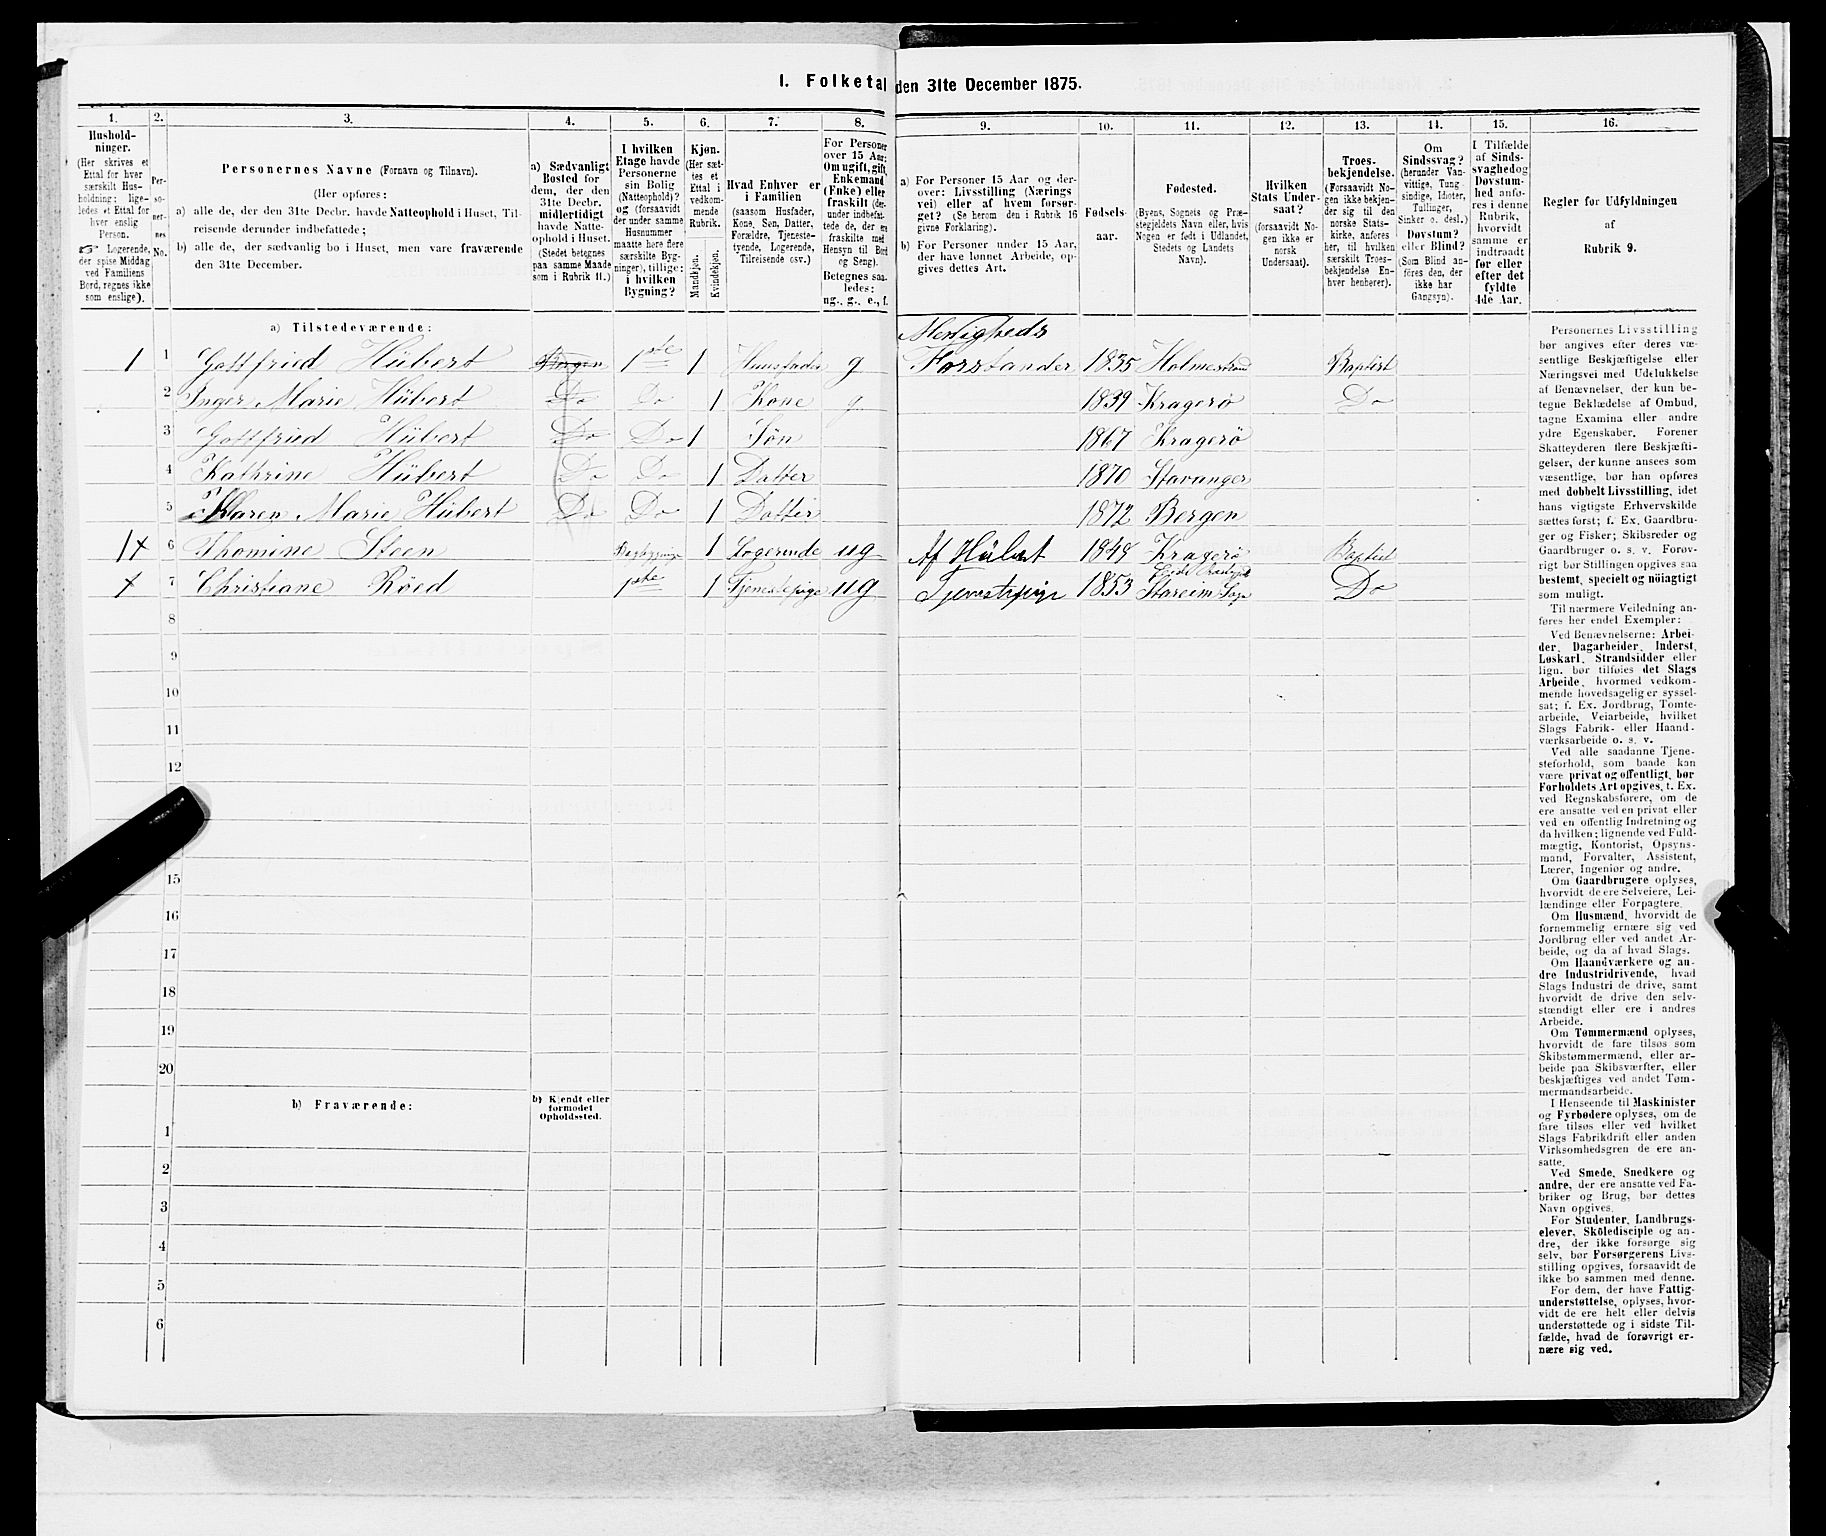 1. Folketal den 31te December 1875.
1. 2. 3. 4. 5. 6. 7. 8. 9. 10. 11. 12. 13. 14. 15. 16.
Husholdninger.
(Her skrives et
Ettal for hver
særskilt Husholdning;
ligeledes et Ettal for
hver enslig
Person.
☞ Logerende,
der spise Middag
ved Familiens
Bord, regnes ikke
som enslige).
Personernes No.
Personernes Navne (Fornavn og Tilnavn).
(Her opføres:
a) alle de, der den 31te Decbr. havde Natteophold i Huset, Tilreisende derunder indbefattede;
b) alle de, der sædvanlig bo i Huset, men vare fraværende
den 31te December.
a) Sædvanligt
Bosted for
dem, der den
31te Decbr.
midlertidigt
havde Natteophold i Huset.
(Stedet betegnes
paa samme Maade
som i Rubrik 11.)
I hvilken
Etage havde
Personerne
sin Bolig
(Natteophold)?
og (forsaavidt
der under samme
Husnummer
maatte høre flere
særskilte Bygninger), tillige:
i hvilken
Bygning?
Kjøn.
(Her sættes et
Ettal i
vedkommende
Rubrik.
Mandkjøn.
Kvindekjøn.
Hvad Enhver er
i Familien
(saasom Husfader,
Kone, Søn, Datter,
Forældre, Tjenestetyende, Logerende,
Tilreisende osv.)
For Personer
over 15 Aar:
Om ugift, gift,
Enkemand
(Enke) eller
fraskilt (derunder indbefattede de, der ere
fraskilte med
Hensyn til Bord
og Seng).
Betegnes saaledes:
ug., g., e., f.
a) For Personer 15 Aar og derover: Livsstilling (Næringsvei) eller af hvem forsørget? (Se herom den i Rubrik 16
givne Forklaring).
b) For Personer under 15 Aar,
der have lønnet Arbeide, opgives dettes Art.
Fødselsaar.
Fødested.
(Byens, Sognets og Præstegjeldets Navn eller, hvis
Nogen er født i Udlandet,
Stedets og Landets
Navn).
Hvilken
Stats Undersaat?
(forsaavidt Nogen ikke er
norsk
Undersaat).
Troesbekjendelse.
(Forsaavidt Nogen ikke bekjender sig til den
norske Statskirke, anføres
her, til hvilken
særskilt Troesbekjendelse Enhver henhører).
Om
Sindssvag?
(herunder Vanvittige, Tungsindige, Idioter,
Tullinger,
Sinker o. desl.)
Døvstum?
eller Blind?
(Som Blind anføres den, der
ikke har
Gangsyn).
I Tilfælde
af Sindssvaghed og
Døvstumhed anføres i denne
Rubrik,
hvorvidt
samme er
indtraadt
før eller
efter det
fyldte
4de Aar.
Regler før Udfyldningen
af
Rubrik 9.
a) Tilstedeværende:
Menigheds
1 1 Gottfried Hübert Bergen 1ste 1 Huusfader g Forstander 1835 Holmestrand Baptist
2 Inger Marie Hübert Do Do 1 Kone g 1839 Kragerö Do
3 Gottfried Hübert Do Do 1 Sön 1867 Kragerö
4 Kathrine Hübert Do Do 1 Datter 1870 Stavanger
5 Karen Marie Hübert Do Do 1 Datter 1872 Bergen
1 x 6 Thomine Steen Bagbygning 1 Logerende ug Af Hübert 1848 Kragerö Baptist
x 7 Christiane Röed 1ste 1 Tjenestepige ug Tjenestepige 1853 Do
8
9
10
11
12
15
16
17
18
19
20
b) Fraværende:
b) Kjendt eller
formodet
Opholdssted.
1
2
3
4
5
6
Personernes Livsstilling
bør angives efter deres væsentlige Beskjæftigelse eller
Næringsvei med Udelukkelse
af Benævnelser, der kun betegne Beklædelse af Ombud,
tagne Examina eller andre
ydre Egenskaber. Forener
Skatteyderen flere Beskjæftigelser, der kunne ansees som
væsentlige, bør han opføres
med dobbelt Livsstilling, idet
hans vigtigste Erhvervskilde
sættes først; f. Ex. Gaardbruger og Fisker; Skibsreder og
Gaardbruger o. s. v. Forøvrigt bør Stillingen opgives saa
bestemt, specielt og nöiagtigt
som muligt.
Til nærmere Veiledning anføres her endel Exempler:
Ved Benævnelserne: Arbeider, Dagarbeider, Inderst,
Løskarl, Strandsidder eller
lign. bør tilføies det Slags
Arbeide, hvormed vedkommende hovedsagelig er sysselsat; f. Ex. Jordbrug, Tomtearbeide, Veiarbeide, hvilket
Slags Fabrik- eller Haandværksarbeide o. s. v.
Ved alle saadanne Tjenesteforhold, som baade kan
være privat og offentligt, bør
Forholdets Art opgives, t. Ex.
ved Regnskabsførere, om de
ere ansatte ved en privat eller
ved en offentlig Indretning og
da hvilken; lignende ved Fuldmægtig, Kontorist, Opsynsmand, Forvalter, Assistent,
Lærer, Ingeniør og andre.
Om Gaardbrugere oplyses,
hvorvidt de ere Selveiere, Leilændinge eller Forpagtere.
Om Husmænd, hvorvidt de
fornemmelig ernære sig ved
Jordbrug eller ved andet Arbeide, og da af hvad Slags.
Om Haandværkere og andre Industridrivende, hvad
Slags Industri de drive, samt
hvorvidt de drive den selvstændigt eller ere i andres
Arbeide.
Om Tømmermænd oplyses,
hvorvidt de fare tilsøs som
Skibstømmermænd, eller arbeide paa Skibsværfter, eller
beskjæftiges ved andet Tømmermandsarbeide.
I Henseende til Maskinister
og Fyrbødere oplyses, om de
fare tilsøs eller ved hvilket
Slags Fabrikdrift eller anden
Virksomhedsgren de ere ansatte.
Ved Smede, Snedkere og
andre, der ere ansatte ved Fabriker og Brug, bør dettes
Navn opgives.
For Studenter, Landbrugselever, Skoledisciple og andre, der ikke forsørge sig
selv, bør Forsørgerens Livsstilling opgives, forsaavidt de
ikke bo sammen med denne.
For dem, der have Fattigunderstøttelse, oplyses, hvorvidt de ere helt eller delvis
understøttede og i sidste Tilfælde, hvad de forøvrigt ernære sig ved.